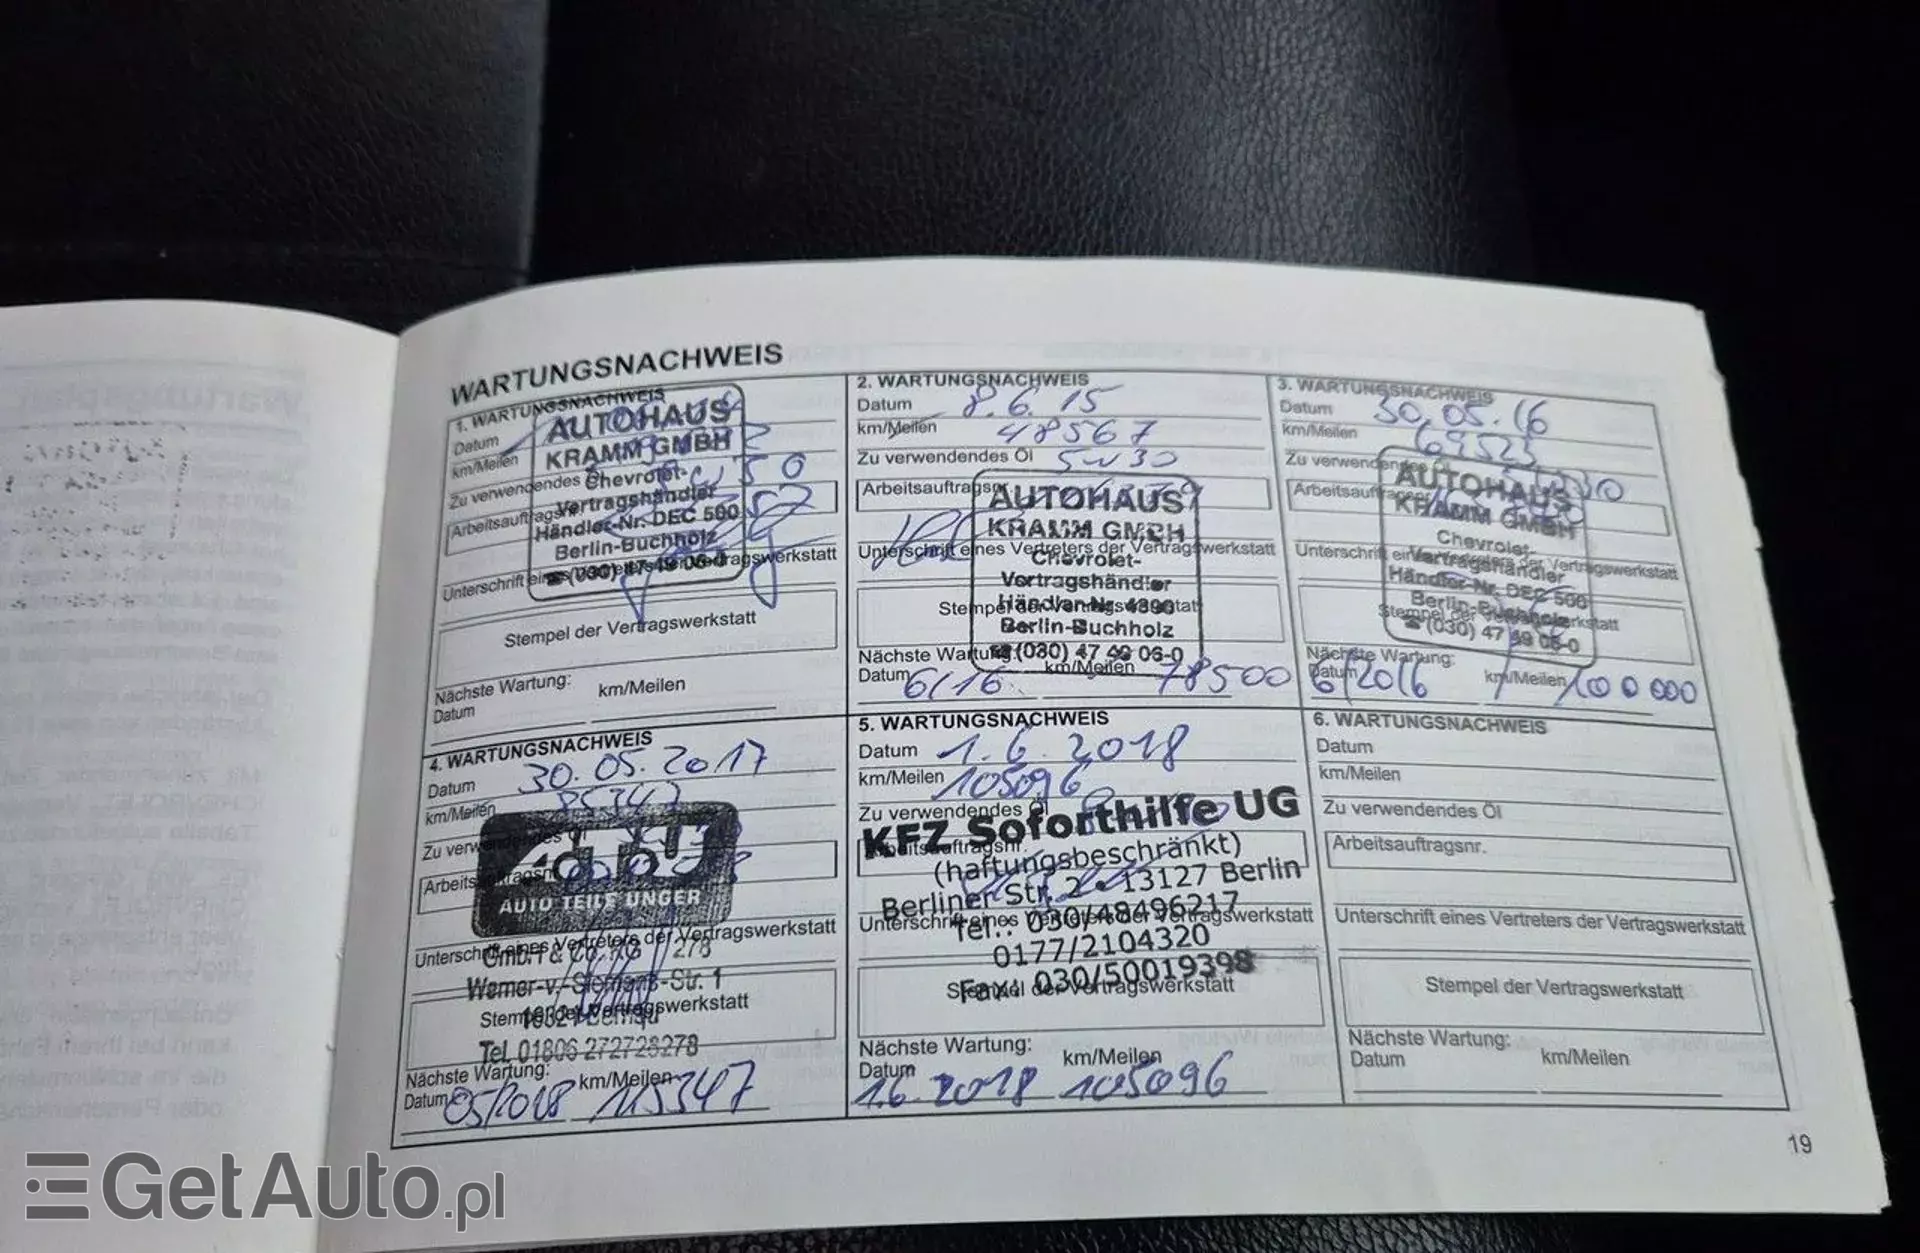 WARTUNGSNACHWEIS
1. WARTUNGSNACHWEIS
Datum
km/Meilen
Zu verwendendes
Arbeitsauftragsnr.
AUTOHAUS
KRAMM GMBH
Chevrolet-
Vertragshändler
Händler-Nr. DEC 500
Berlin-Buchholz
☎(030) 47 49 06-0
Stempel der Vertragswerkstatt
Nächste Wartung:
Datum km/Meilen
2. WARTUNGSNACHWEIS
Datum 8.6.15
km/Meilen 48567
Zu verwendendes Öl 5W30
Arbeitsauftragsnr.
Unterschrift eines Vertreters der Vertragswerkstatt
AUTOHAUS
KRAMM GMBH
Chevrolet-
Vertragshändler
Händler-Nr. 4390
Berlin-Buchholz
☎(030) 47 49 06-0
Stempel der Vertragswerkstatt
Nächste Wartung:
Datum 6/16 km/Meilen 78500
3. WARTUNGSNACHWEIS
Datum 30.05.16
km/Meilen 69523
Zu verwendendes Öl
Arbeitsauftragsnr.
Unterschrift eines Vertreters der Vertragswerkstatt
AUTOHAUS
KRAMM GMBH
Chevrolet-
Vertragshändler
Händler-Nr. DEC 500
Berlin-Buchholz
☎(030) 47 49 06-0
Stempel der Vertragswerkstatt
Nächste Wartung:
Datum 6/2016 km/Meilen 100 000
4. WARTUNGSNACHWEIS
Datum 30.05.2017
km/Meilen 85347
Zu verwendendes Öl
Arbeitsauftragsnr.
AUTO TEILE UNGER
Unterschrift eines Vertreters der Vertragswerkstatt
GmbH & Co. KG
Werner-v.-Siemens-Str. 1
Stempel der Vertragswerkstatt
Tel. 01806 272728278
Nächste Wartung:
Datum 05/2018 km/Meilen 115347
5. WARTUNGSNACHWEIS
Datum 1.6.2018
km/Meilen 105096
Zu verwendendes Öl
Arbeitsauftragsnr.
KFZ Soforthilfe UG
(haftungsbeschränkt)
Berliner Str. 2 • 13127 Berlin
Unterschrift eines Vertreters der Vertragswerkstatt
Tel.: 030/48496217
0177/2104320
Fax: 030/50019398
Stempel der Vertragswerkstatt
Nächste Wartung:
Datum 1.6.2018 km/Meilen 105096
6. WARTUNGSNACHWEIS
Datum
km/Meilen
Zu verwendendes Öl
Arbeitsauftragsnr.
Unterschrift eines Vertreters der Vertragswerkstatt
Stempel der Vertragswerkstatt
Nächste Wartung:
Datum km/Meilen
19
GetAuto.pl